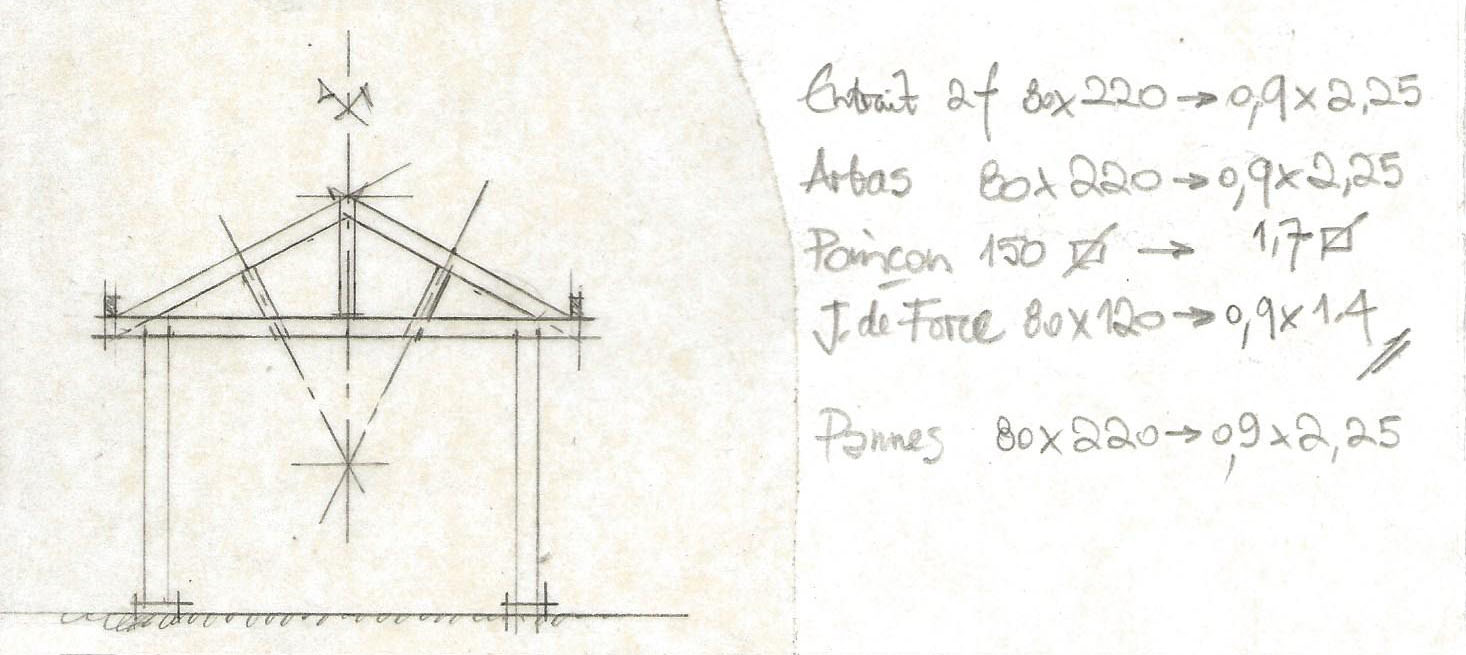 Entrait 2f 80x220→0,9x2,25
Arbas 80x220→0,9x2,25
Poinçon 150 → 1,7
J. de Force 80x120→0,9x1.4
Pannes 80x220→0,9x2,25